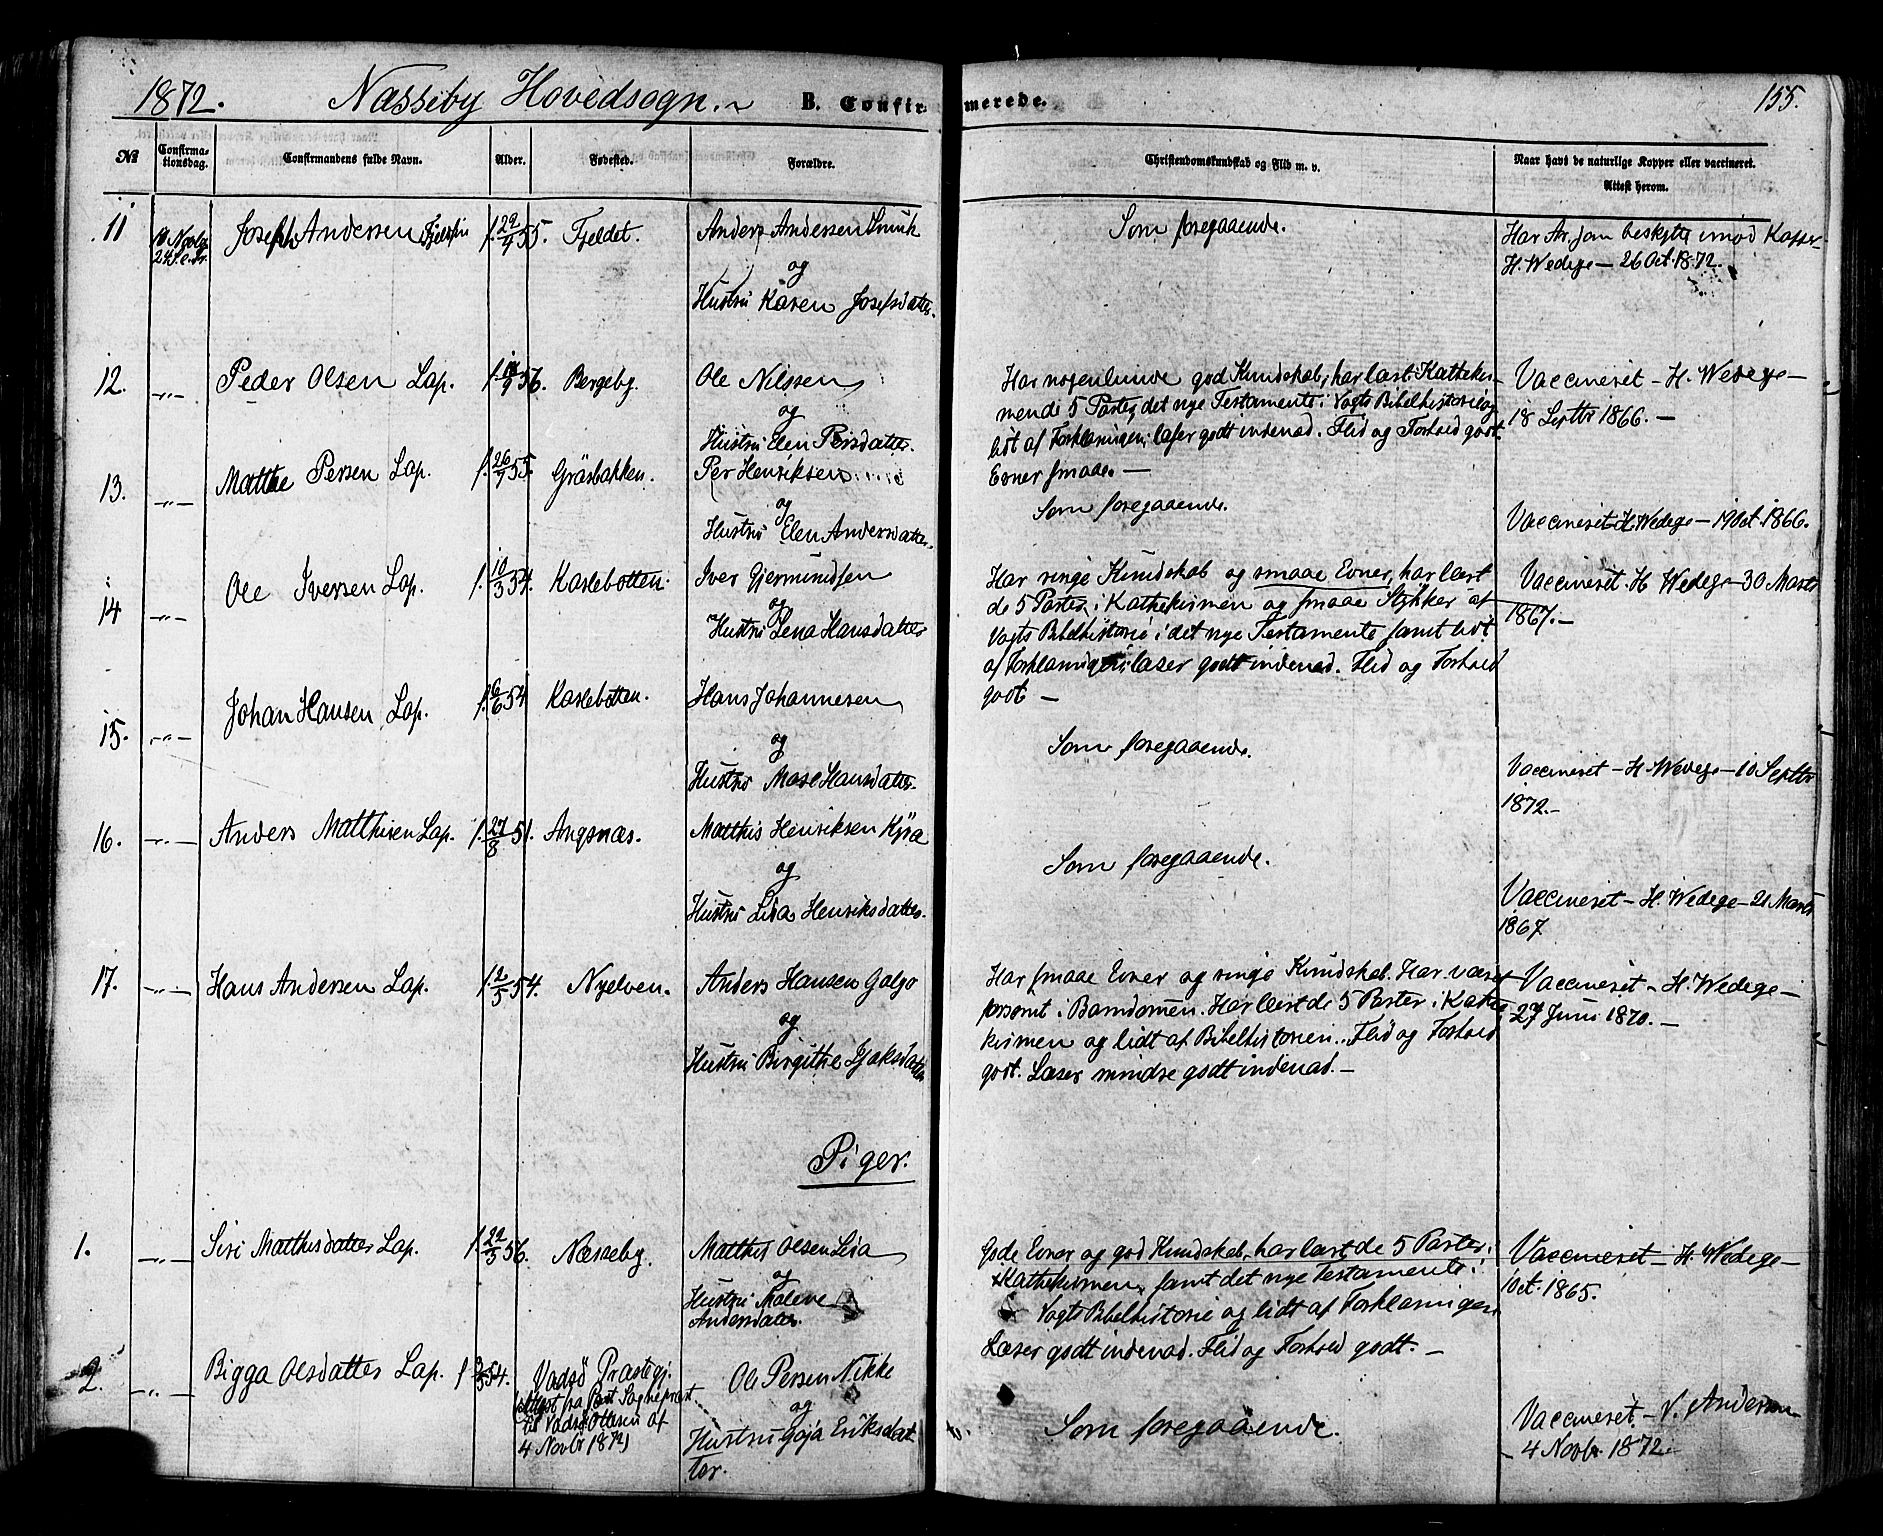 1872. Næsseby Hovedsogn. B. Confirmerede. 155.
No Confirmationsdag. Confirmandens fulde Navn. Alder. Fødested. Forældre. Christendomskundskab og Flid m. v. Naar havt de naturlige Kopper eller vaccineret. Attest herom.
11 10 Novbr 24 S. e. Tr. Joseph Andersen f. 22/9 55. Fjeldet. Anders Andersen Smuk
og
Hustru Karen Josefsdatter.
Som foregaaende.
Har Ar, som beskytte imod Kopper
H. Wedege – 26 Oct. 1872.
12. –„– Peder Olsen Lap. 56. Bergeby. Ole Nilssen
og
Hustru Elen Persdatter.
Har nogenlunde god Kundskab, har læst Katheke-
mende 5 Parter, det nye Testamente, Vogts Bibelhistorie og
lidt af Forklaringen; læser godt indenad. Flid og Forhold godt.
Evner smaae. –
Vaccineret – H. Wedege –
18 Septbr 1866. –
13. –„– Matthe Persen Lap. f. 26/9 55. Gräsbakken. Per Henriksen
og
Hustru Elen Andersdatter.
Som foregaaende.
Vaccineret H. Wedege – 19 Oct. 1866.
14 –„– Ole Iversen Lap. f. 10/3 54. Karlebotten. Iver Gjermundsen
og
Hustru Lena Hansdatter
Har ringe Kundskab og smaae Evner, har læst
de 5 Parter i Kathekismen og smaae Stykker af
Vogts Bibelhistorie i det nye Testamente samt lidt
af Forklaringen; læser godt indenad. Flid og Forhold
godt –
Vaccineret. H. Wedege – 30 Marts
1867. –
15. –„– Johan Hansen Lap. f. 6/6 54 Karlebotten. Hans Johannesen
og
Hustru Mare Hansdatter.
Som foregaaende.
Vaccineret – H. Wedege – 10 Septbr
1872. –
16. –„– Anders Matthisen Lap. f. 27/8 51. Angsnæs. Matthis Henriksen Kjøa
og
Hustru Lisa Henriksdatter.
Som foregaaende.
Vaccineret – H. Wedege – 21 Marts
1867
17. –„– Hans Andersen Lap. f. 2/5 54. Nyelven. Anders Hansen Galgo
og
Hustru Birgithe
Har smaae Evner og ringe Kundskab. Har været
forsømt i Barndomen. Har læst de 5 Parter i Kathe-
kismen og lidt af Bibelhistorien. Flid og Forhold
godt. Læser mindre godt indenad. –
Vaccineret – H. Wedege –
27 Juni 1870. –
Piger.
1. –„– Siri Matthisdatter Lap. f. 22/3 56. Næsseby. Matthis Olsen Lisa
og
Hustru Malene
Andersdatter.
Gode Evner og god Kundskab, har læst de 5 Parter i
Kathekismen, samt det nye Testamente i
Vogts Bibelhistorie og lidt af Forklaringen
Læser godt indenad. Flid og Forhold godt. –
Vaccineret – H. Wedege –
Oct. 1865.
2. –„– Bigga Olsdatter Lap. 54. Vadsö Præstegj.
(Attest fra Sogneprest
til Vadsø Ottesen af
4 Novbr 1872)
Ole Persen Nikke
og
Hustru Goja Eriksdat
ter.
Som foregaaende.
Vaccineret. – V. Andersen
– 4 Novbr. 1872 –